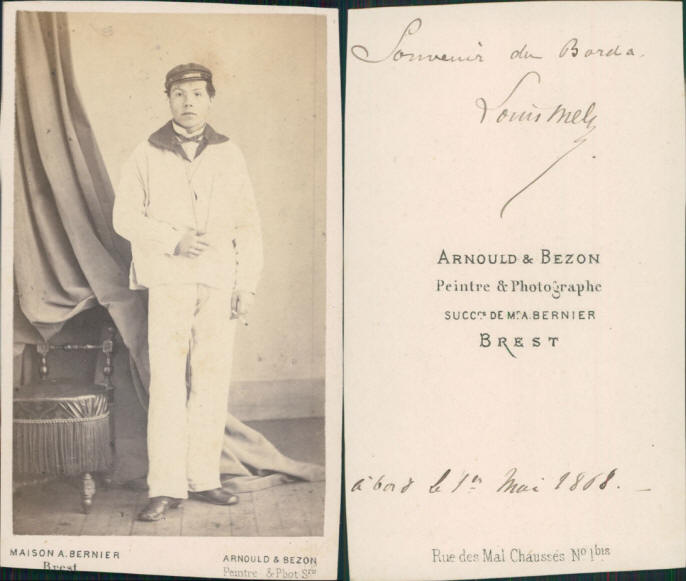 MAISON A. BERNIER
Brest
ARNOULD & BEZON
Peintre & Phot Srs
Souvenir du Borda.
Louis Mel
ARNOULD & BEZON
Peintre & Photographe
SUCCrs DE Mr A. BERNIER
BREST
à bord le 1er Mai 1868. _
Rue des Mal Chaussés No 1 bis